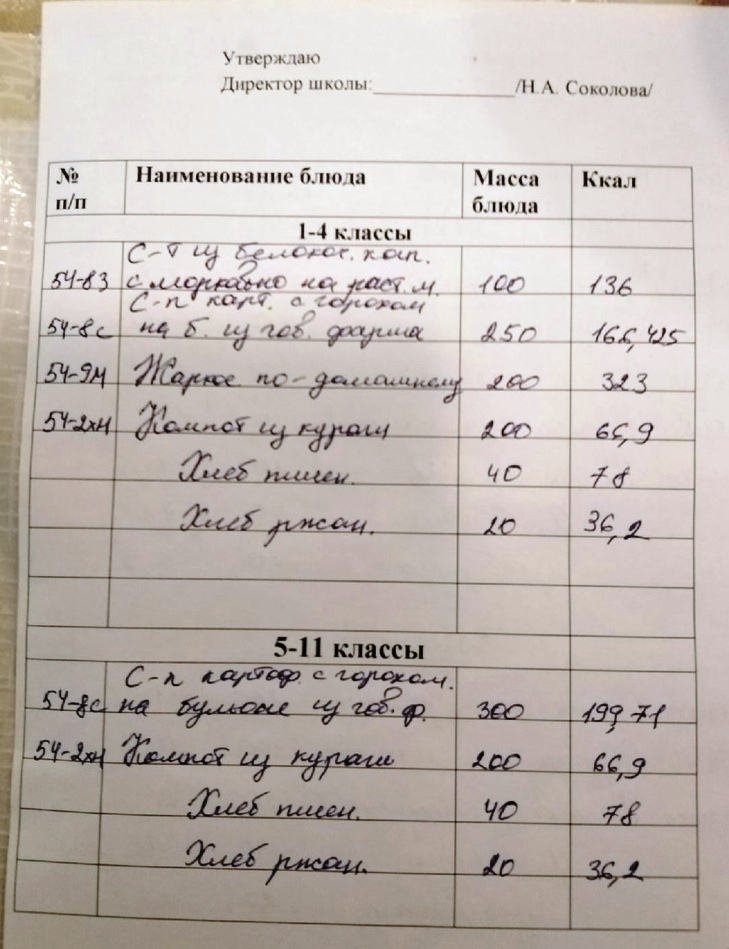 Утверждаю
Директор школы:_______________/Н.А. Соколова/
№ п/п Наименование блюда Масса блюда Ккал
1-4 классы
С-т из белокоч. кап.
54-8з с морковью на раст. м. 100 136
С-п карт. с горохом
54-8с на б. из гов. фарша 250 166,425
54-9м Жаркое по-домашнему 200 323
54-2хн Компот из кураги 200 66,9
Хлеб пшен. 40 78
Хлеб ржан. 20 36,2
5-11 классы
С-п картоф. с горохом.
54-8с на бульоне из гов. ф. 300 199,71
54-2хн Компот из кураги 200 66,9
Хлеб пшен. 40 78
Хлеб ржан. 20 36,2